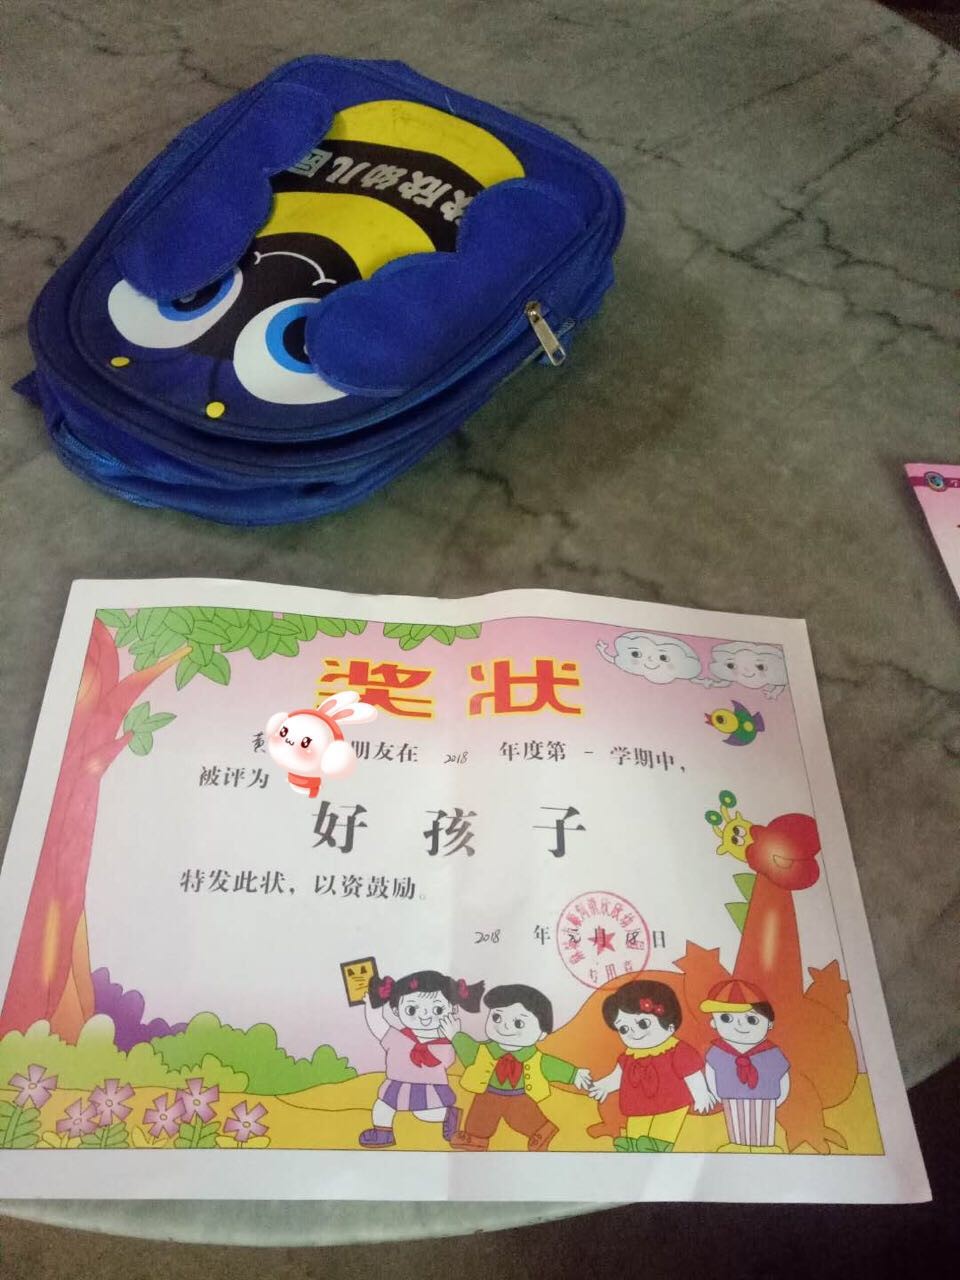 欣幼儿园
奖状
黄 朋友在 2018 年度第 一 学期中,
被评为
好孩子
特发此状，以资鼓励。
2018 年 月 18 日
专用章